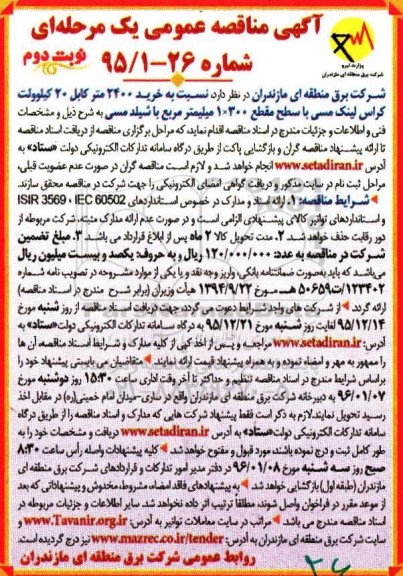 آگهی مناقصه عمومی یک مرحله‌ای
شماره ۲۶-۹۵/۱
نوبت دوم
وزارت نیرو
شرکت برق منطقه ای مازندران
شرکت برق منطقه ای مازندران در نظر دارد، نسبت به خرید ۲۴۰۰ متر کابل ۲۰ کیلوولت
کراس لینک مسی با سطح مقطع ۳۰۰×۱ میلیمتر مربع با شیلد مسی به شرح ذیل و مشخصات
فنی و اطلاعات و جزئیات مندرج در اسناد مناقصه اقدام نماید، که مراحل برگزاری مناقصه از دریافت اسناد مناقصه
تا ارائه پیشنهاد مناقصه گران و بازگشایی پاکت از طریق درگاه سامانه تدارکات الکترونیکی دولت «ستاد» به
آدرس www.setadiran.ir انجام خواهد شد و لازم است مناقصه گران در صورت عدم عضویت قبلی،
مراحل ثبت نام در سایت مذکور و دریافت گواهی امضای الکترونیکی را جهت شرکت در مناقصه محقق سازند.
شرایط مناقصه: ۱. ارائه اسناد و مدارک در خصوص استانداردهای IEC 60502 ، ISIR 3569
و استانداردهای توانیر کالای پیشنهادی الزامی است و در صورت عدم ارائه مدارک مثبته، شرکت مربوطه از
دور رقابت حذف خواهد شد. ۲. مدت تحویل کالا ۲ ماه پس از ابلاغ قرارداد می باشد. ۳. مبلغ تضمین
شرکت در مناقصه به عدد: ۱۲۰/۰۰۰/۰۰۰ ریال و به حروف: یکصد و بیست میلیون ریال
می‌باشد که باید به‌صورت ضمانتنامه بانکی، واریز وجه نقد و یا یکی از موارد مشروحه در تصویب نامه شماره
۱۲۳۴۰۲/ت۵۰۶۵۹هـ مورخ ۱۳۹۴/۹/۲۲ هیأت وزیران (برابر شرح مندرج در اسناد مناقصه)
ارائه گردد. از شرکت های واجد شرایط دعوت می گردد جهت دریافت اسناد مناقصه از روز شنبه مورخ
۹۵/۱۲/۱۴ لغایت روز شنبه مورخ ۹۵/۱۲/۲۱ به درگاه سامانه تدارکات الکترونیکی دولت «ستاد» به
آدرس: www.setadiran.ir مراجعه و پس از اخذ کپی از کلیه مدارک و شرایط اسناد مناقصه آن ها
را ممهور به مهر و امضاء نموده و به همراه پیشنهاد قیمت ارائه نمایند. متقاضیان می بایستی پیشنهاد خود را
براساس شرایط مندرج در اسناد مناقصه تنظیم و حداکثر تا آخر وقت اداری ساعت ۱۵:۳۰ روز دوشنبه مورخ
۹۶/۰۱/۰۷ به دبیرخانه شرکت برق منطقه ای مازندران واقع در ساری-میدان امام خمینی(ره) در مقابل اخذ
رسید تحویل نمایند. لازم به ذکر است فقط پیشنهاد شرکت هایی که مدارک و اسناد مناقصه را از طریق درگاه
سامانه تدارکات الکترونیکی دولت «ستاد» به آدرس www.setadiran.ir دریافت و مشخصات خود را به
طور کامل ثبت و درج نموده باشند، مورد قبول و مفتوح خواهد شد. کلیه پیشنهادات واصله رأس ساعت ۸:۳۰
صبح روز سه شنبه مورخ ۹۶/۰۱/۰۸ در دفتر مدیر امور تدارکات و قراردادهای شرکت برق منطقه ای
مازندران (طبقه اول) بازگشایی خواهد شد. به پیشنهادهای فاقد امضاء، مشروط، مخدوش و پیشنهاداتی که بعد
از موعد مقرر در فراخوان واصل شوند، مطلقا ترتیب اثر داده نخواهد شد. سایر اطلاعات و جزئیات مربوطه در
اسناد مناقصه مندرج می باشد. مراتب در سایت معاملات توانیر به آدرس: www.Tavanir.org.ir و
سایت شرکت برق منطقه ای مازندران به آدرس: www.mazrec.co.ir/tender نیز درج گردیده است.
روابط عمومی شرکت برق منطقه ای مازندران